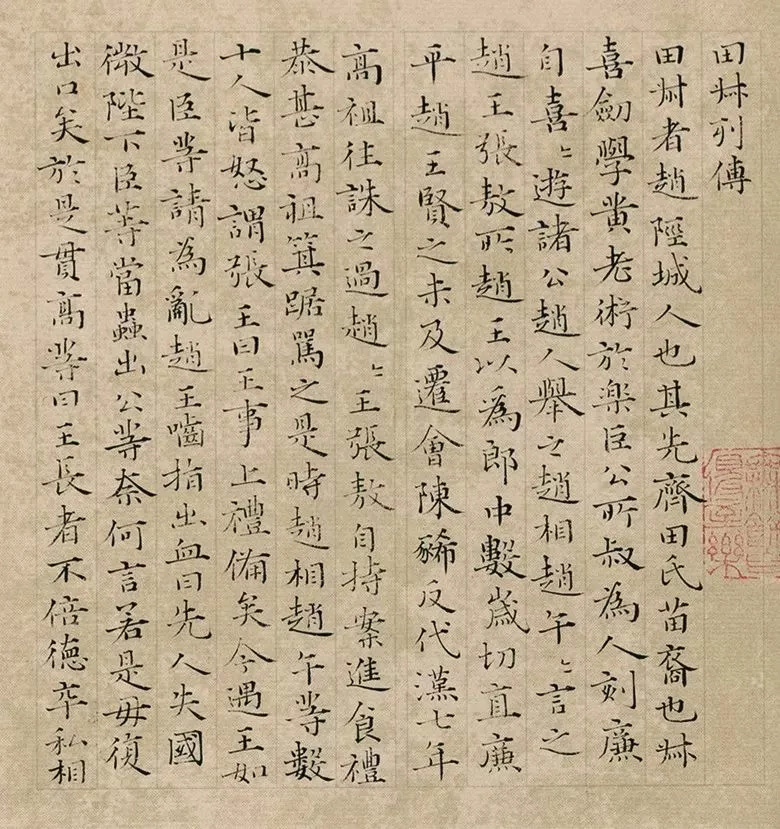 田叔列傳
田叔者趙陘城人也其先齊田氏苗裔也叔
喜劔學黄老術於樂臣公所叔為人刻廉
自喜〻遊諸公趙人舉之趙相趙午〻言之
趙王張敖所趙王以為郎中數歲切直廉
平趙王賢之未及遷會陳豨反代漢七年
高祖往誅之過趙〻王張敖自持案進食禮
恭甚高祖箕踞罵之是時趙相趙午等數
十人皆怒謂張王曰王事上禮備矣今遇王如
是臣等請為亂趙王嚙指出血曰先人失國
微陛下臣等當蟲出公等奈何言若是毋復
出口矣於是貫高等曰王長者不倍德卒私相